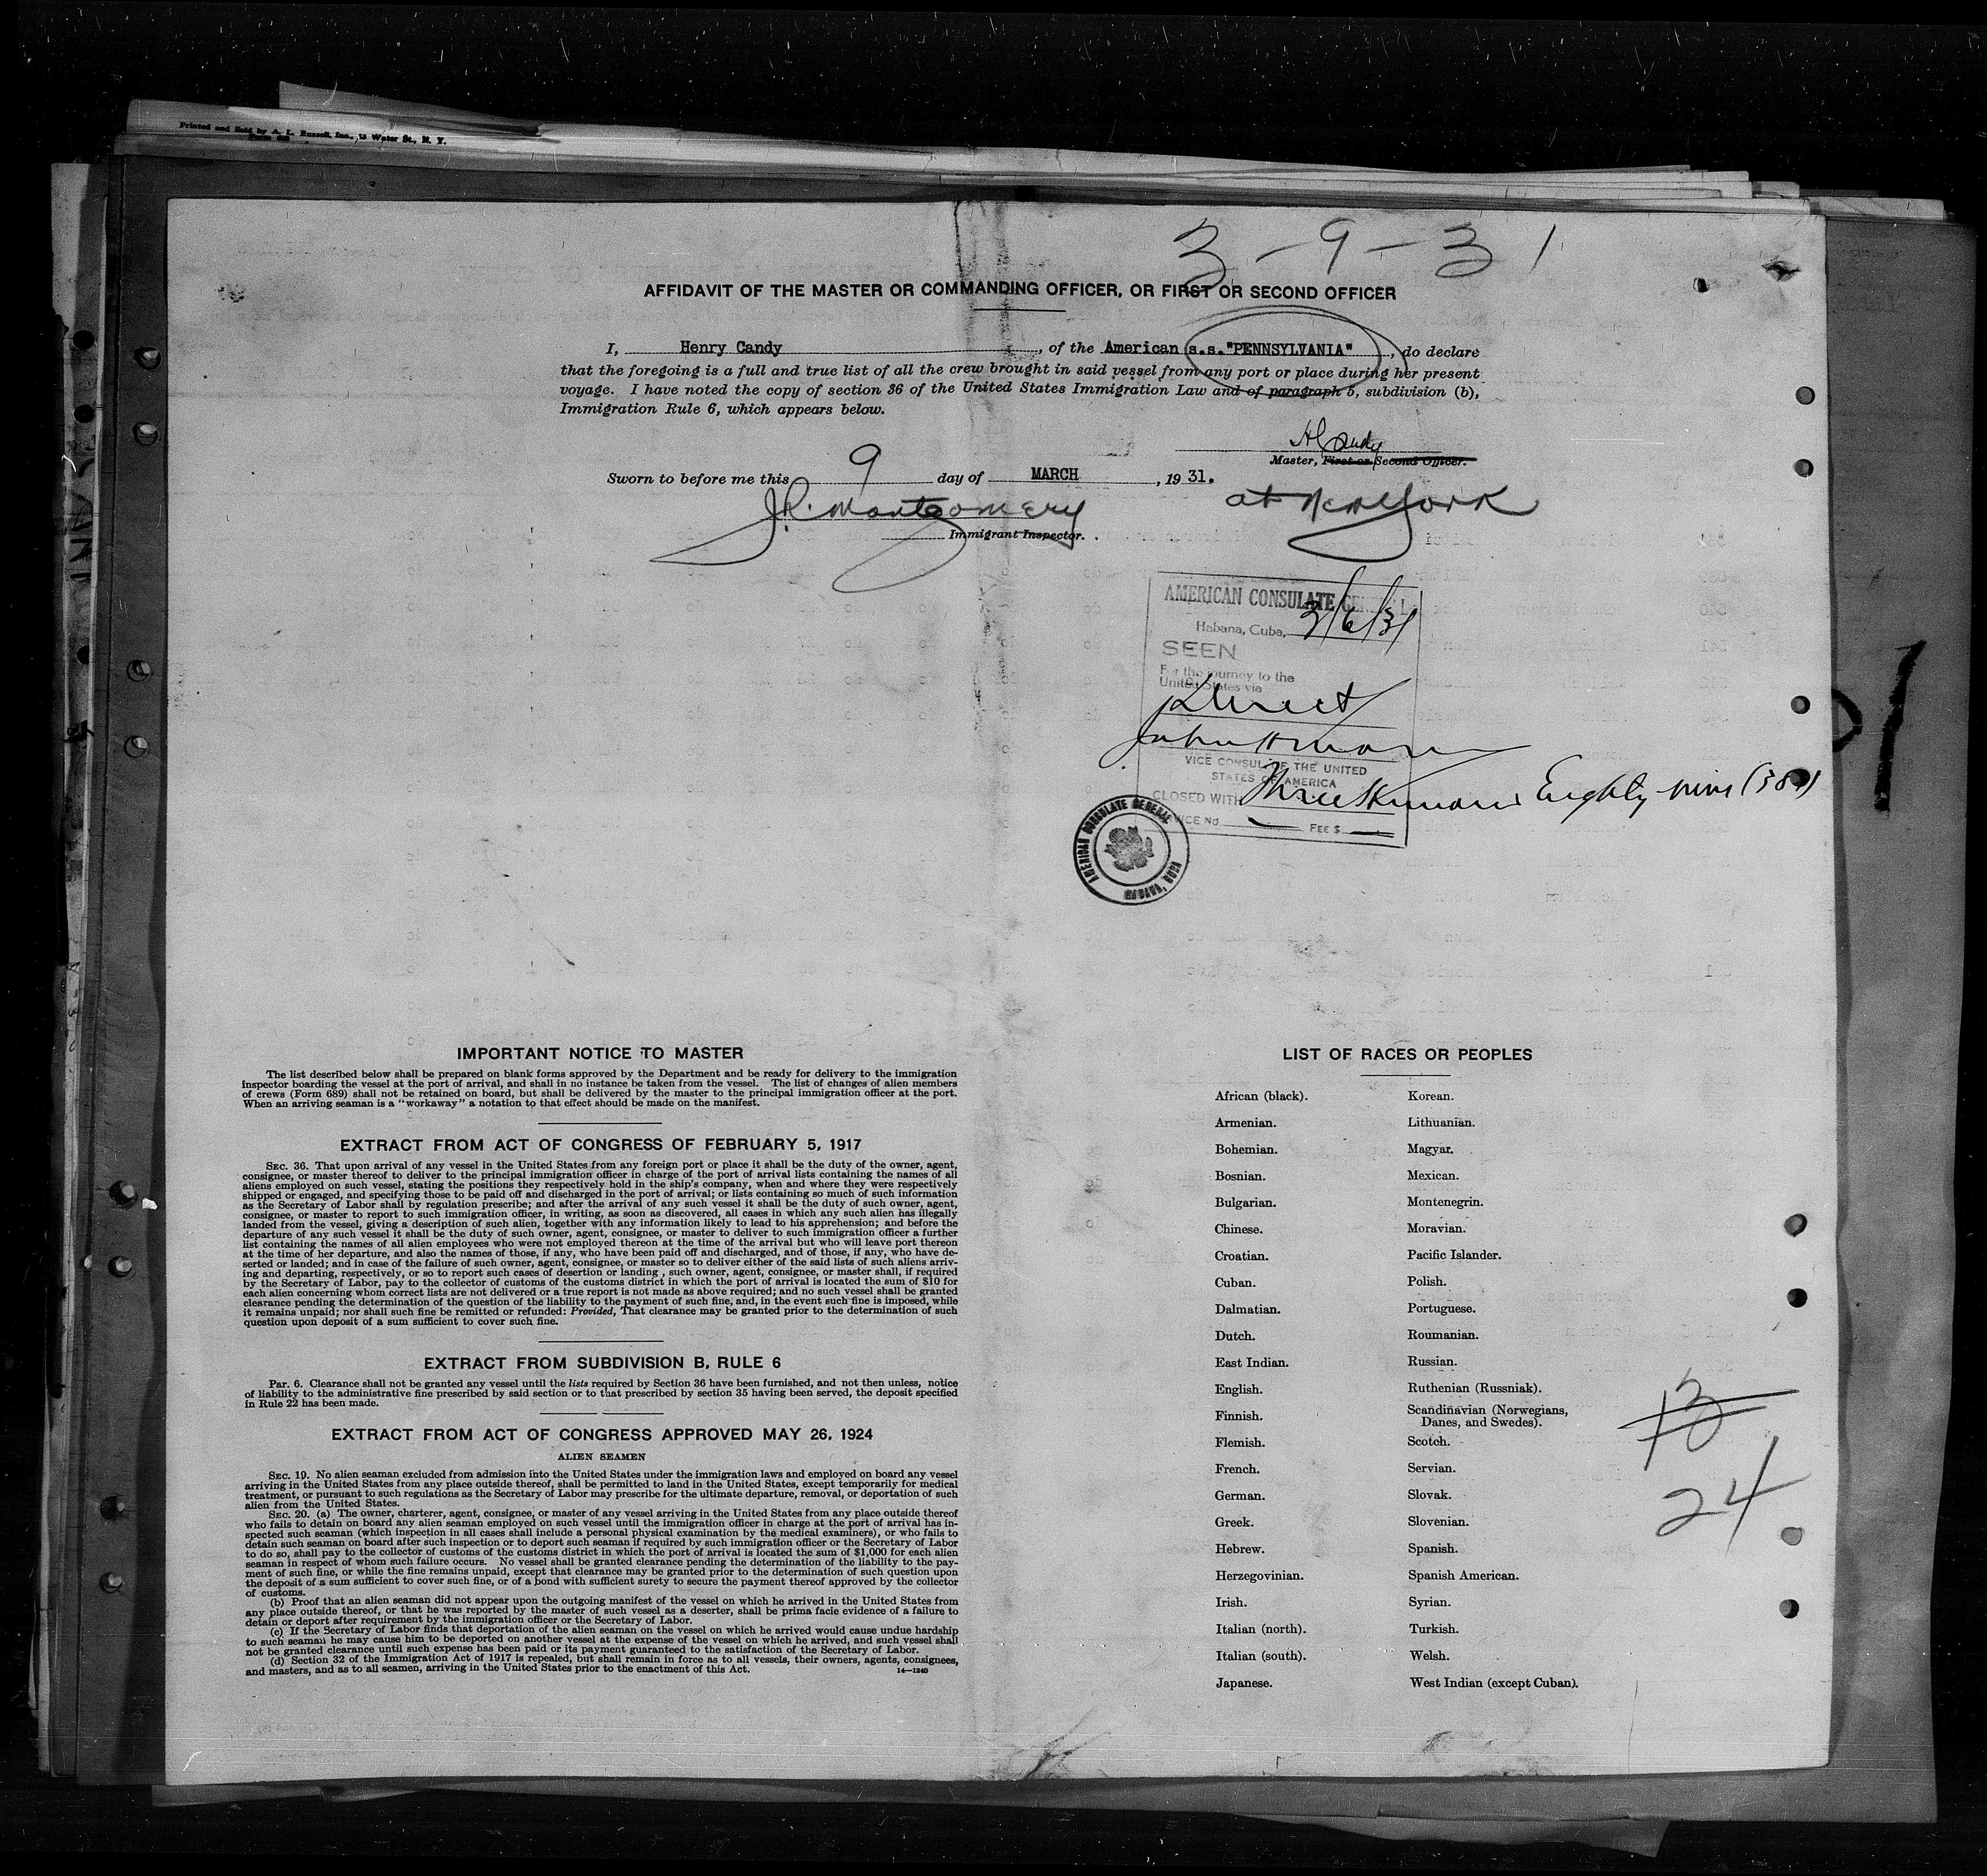 Printed and Sold by A. L. Russell, Inc., 13 Water St., N. Y.
3-9-31
AFFIDAVIT OF THE MASTER OR COMMANDING OFFICER, OR FIRST OR SECOND OFFICER
I, Henry Candy, of the American s.s."PENNSYLVANIA", do declare
that the foregoing is a full and true list of all the crew brought in said vessel from any port or place during her present
voyage. I have noted the copy of section 36 of the United States Immigration Law and of paragraph 5, subdivision (b),
Immigration Rule 6, which appears below.
HCandy
Master, First or Second Officer.
Sworn to before me this 9 day of MARCH, 19 31.
J.R. Montgomery
at New York
Immigrant Inspector.
AMERICAN CONSULATE GENERAL
Habana, Cuba, 3/6/31
SEEN
For the journey to the
United States via
Direct
VICE CONSUL OF THE UNITED
STATES OF AMERICA
CLOSED WITH Three Hundred Eighty-nine (389)
VICE No FEE $
AMERICAN CONSULATE GENERAL
HABANA, CUBA
IMPORTANT NOTICE TO MASTER
The list described below shall be prepared on blank forms approved by the Department and be ready for delivery to the immigration
inspector boarding the vessel at the port of arrival, and shall in no instance be taken from the vessel. The list of changes of alien members
of crews (Form 689) shall not be retained on board, but shall be delivered by the master to the principal immigration officer at the port.
When an arriving seaman is a "workaway" a notation to that effect should be made on the manifest.
EXTRACT FROM ACT OF CONGRESS OF FEBRUARY 5, 1917
SEC. 36. That upon arrival of any vessel in the United States from any foreign port or place it shall be the duty of the owner, agent,
consignee, or master thereof to deliver to the principal immigration officer in charge of the port of arrival lists containing the names of all
aliens employed on such vessel, stating the positions they respectively hold in the ship's company, when and where they were respectively
shipped or engaged, and specifying those to be paid off and discharged in the port of arrival; or lists containing so much of such information
as the Secretary of Labor shall by regulation prescribe; and after the arrival of any such vessel it shall be the duty of such owner, agent,
consignee, or master to report to such immigration officer, in writing, as soon as discovered, all cases in which any such alien has illegally
landed from the vessel, giving a description of such alien, together with any information likely to lead to his apprehension; and before the
departure of any such vessel it shall be the duty of such owner, agent, consignee, or master to deliver to such immigration officer a further
list containing the names of all alien employees who were not employed thereon at the time of the arrival but who will leave port thereon
at the time of her departure, and also the names of those, if any, who have been paid off and discharged, and of those, if any, who have de-
serted or landed; and in case of the failure of such owner, agent, consignee, or master so to deliver either of the said lists of such aliens arriv-
ing and departing, respectively, or so to report such cases of desertion or landing , such owner, agent, consignee, or master shall, if required
by the Secretary of Labor, pay to the collector of customs of the customs district in which the port of arrival is located the sum of $10 for
each alien concerning whom correct lists are not delivered or a true report is not made as above required; and no such vessel shall be granted
clearance pending the determination of the question of the liability to the payment of such fine, and, in the event such fine is imposed, while
it remains unpaid; nor shall such fine be remitted or refunded: Provided, That clearance may be granted prior to the determination of such
question upon deposit of a sum sufficient to cover such fine.
EXTRACT FROM SUBDIVISION B, RULE 6
Par. 6. Clearance shall not be granted any vessel until the lists required by Section 36 have been furnished, and not then unless, notice
of liability to the administrative fine prescribed by said section or to that prescribed by section 35 having been served, the deposit specified
in Rule 22 has been made.
EXTRACT FROM ACT OF CONGRESS APPROVED MAY 26, 1924
ALIEN SEAMEN
SEC. 19. No alien seaman excluded from admission into the United States under the immigration laws and employed on board any vessel
arriving in the United States from any place outside thereof, shall be permitted to land in the United States, except temporarily for medical
treatment, or pursuant to such regulations as the Secretary of Labor may prescribe for the ultimate departure, removal, or deportation of such
alien from the United States.
SEC. 20. (a) The owner, charterer, agent, consignee, or master of any vessel arriving in the United States from any place outside thereof
who fails to detain on board any alien seaman employed on such vessel until the immigration officer in charge at the port of arrival has in-
spected such seaman (which inspection in all cases shall include a personal physical examination by the medical examiners), or who fails to
detain such seaman on board after such inspection or to deport such seaman if required by such immigration officer or the Secretary of Labor
to do so, shall pay to the collector of customs of the customs district in which the port of arrival is located the sum of $1,000 for each alien
seaman in respect of whom such failure occurs. No vessel shall be granted clearance pending the determination of the liability to the pay-
ment of such fine, or while the fine remains unpaid, except that clearance may be granted prior to the determination of such question upon
the deposit of a sum sufficient to cover such fine, or of a bond with sufficient surety to secure the payment thereof approved by the collector
of customs.
(b) Proof that an alien seaman did not appear upon the outgoing manifest of the vessel on which he arrived in the United States from
any place outside thereof, or that he was reported by the master of such vessel as a deserter, shall be prima facie evidence of a failure to
detain or deport after requirement by the immigration officer or the Secretary of Labor.
(c) If the Secretary of Labor finds that deportation of the alien seaman on the vessel on which he arrived would cause undue hardship
to such seaman he may cause him to be deported on another vessel at the expense of the vessel on which he arrived, and such vessel shall
not be granted clearance until such expense has been paid or its payment guaranteed to the satisfaction of the Secretary of Labor.
(d) Section 32 of the Immigration Act of 1917 is repealed, but shall remain in force as to all vessels, their owners, agents, consignees,
and masters, and as to all seamen, arriving in the United States prior to the enactment of this Act.
14—1240
LIST OF RACES OR PEOPLES
African (black).
Armenian.
Bohemian.
Bosnian.
Bulgarian.
Chinese.
Croatian.
Cuban.
Dalmatian.
Dutch.
East Indian.
English.
Finnish.
Flemish.
French.
German.
Greek.
Hebrew.
Herzegovinian.
Irish.
Italian (north).
Italian (south).
Japanese.
Korean.
Lithuanian.
Magyar.
Mexican.
Montenegrin.
Moravian.
Pacific Islander.
Polish.
Portuguese.
Roumanian.
Russian.
Ruthenian (Russniak).
Scandinavian (Norwegians,
Danes, and Swedes).
Scotch.
Servian.
Slovak.
Slovenian.
Spanish.
Spanish American.
Syrian.
Turkish.
Welsh.
West Indian (except Cuban).
13
24